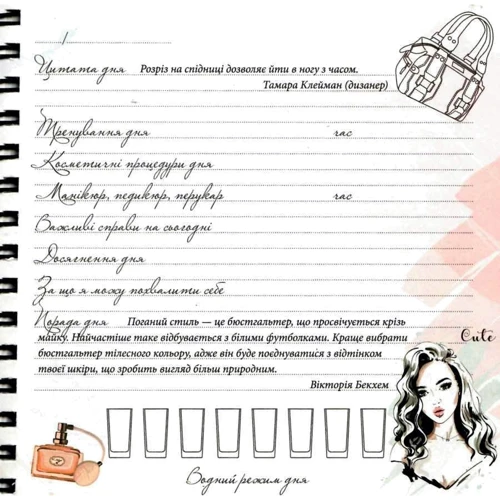 Цитата дня Розріз на спідниці дозволяє йти в ногу з часом.
Тамара Клейман (дизанер)
Тренування дня час
Косметичні процедури дня
Манікюр, педикюр, перукар час
Важливі справи на сьогодні
Досягнення дня
За що я можу похвалити себе
Порада дня Поганий стиль — це бюстгальтер, що просвічується крізь
майку. Найчастіше таке відбувається з білими футболками. Краще вибрати
бюстгальтер тілесного кольору, адже він буде поєднуватися з відтінком
твоєї шкіри, що зробить вигляд більш природним.
Вікторія Бекхем
Cute
Водний режим дня